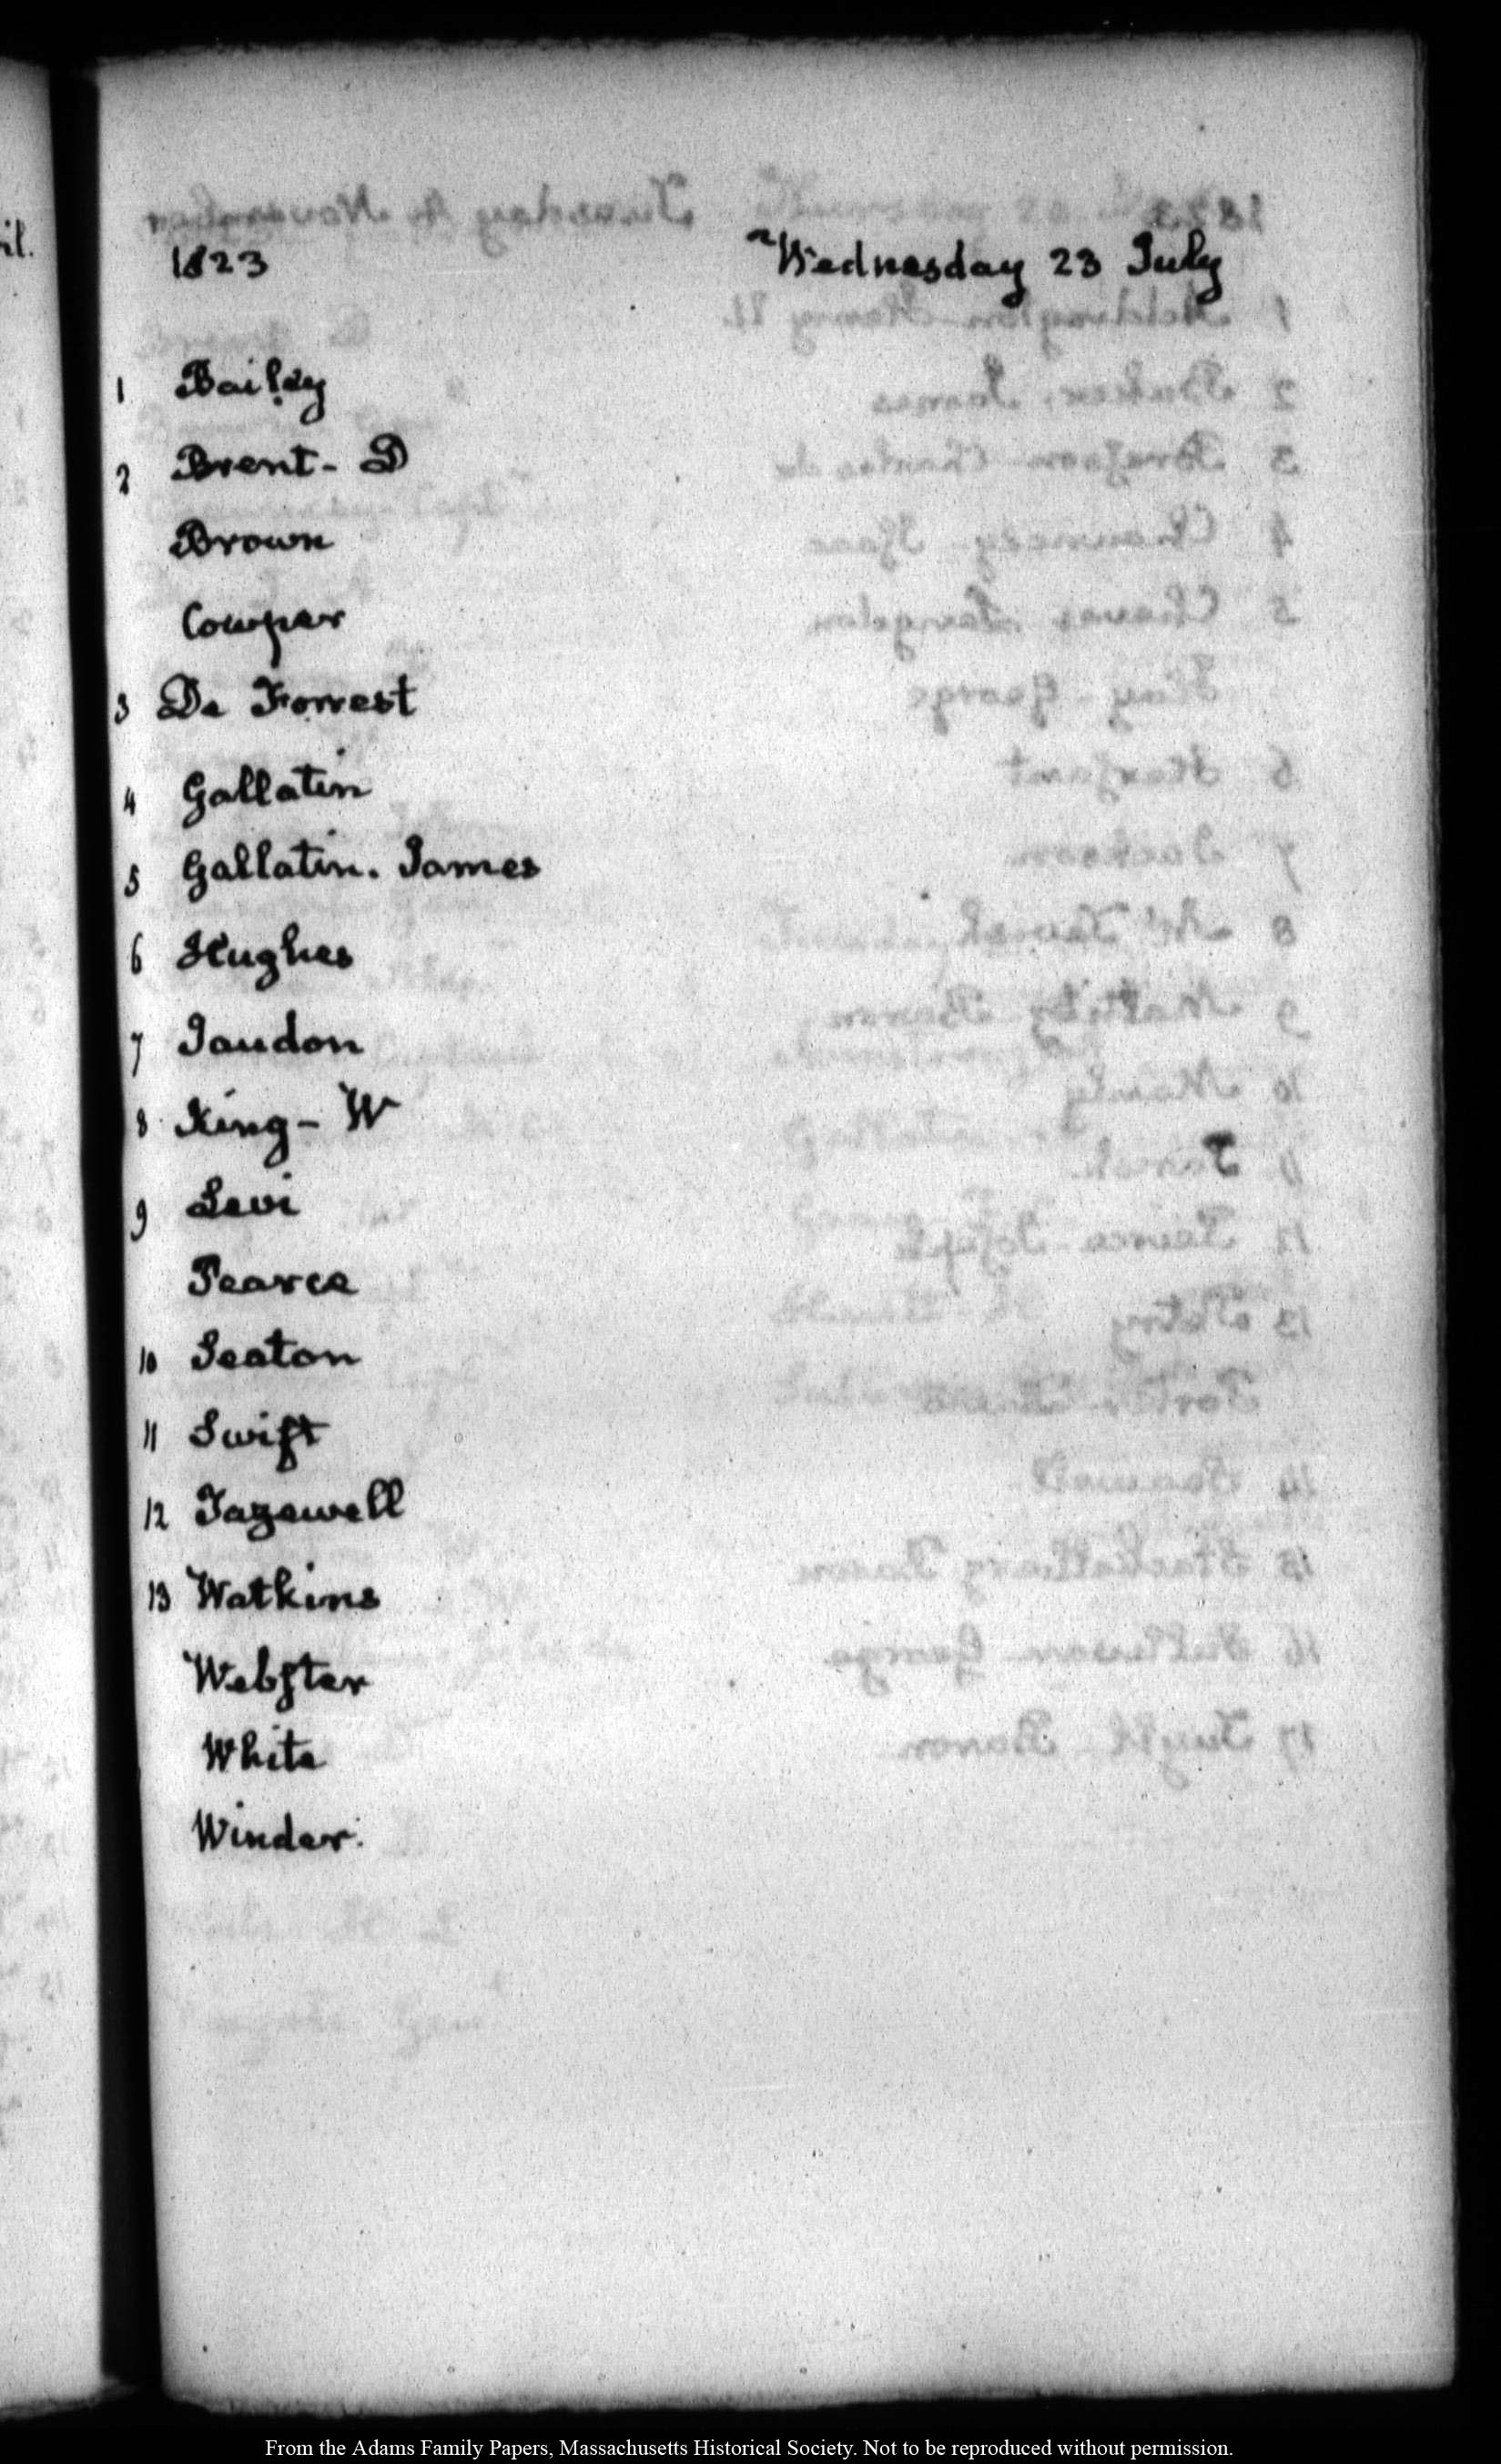 il.
1823 Wednesday 23 July
1 Bailey
2 Brent- D
Brown
Cowper
3 De Forrest
4 Gallatin
5 Gallatin. James
6 Hughes
7 Jaudon
8 King- W
9 Levi
Pearce
10 Seaton
11 Swift
12 Tazewell
13 Watkins
Webster
White
Winder.
From the Adams Family Papers, Massachusetts Historical Society. Not to be reproduced without permission.